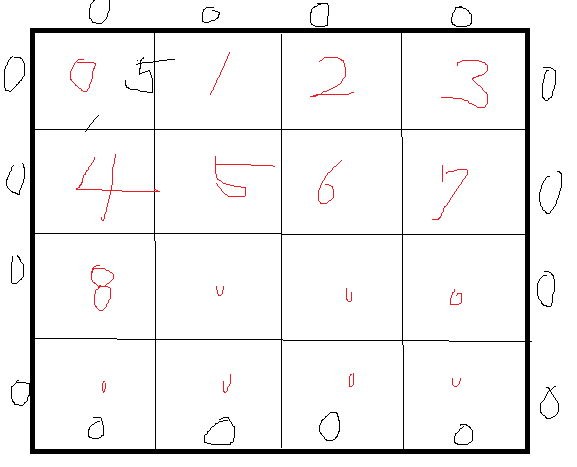 0 0 0 0
0 0 5 1 2 3 0
0 4 5 6 7 0
0 8 0 0 0 0
0 0 0 0 0 0
0 0 0 0